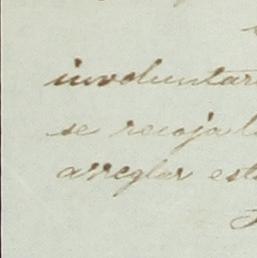 involuntar
se recoja l
arreglar est